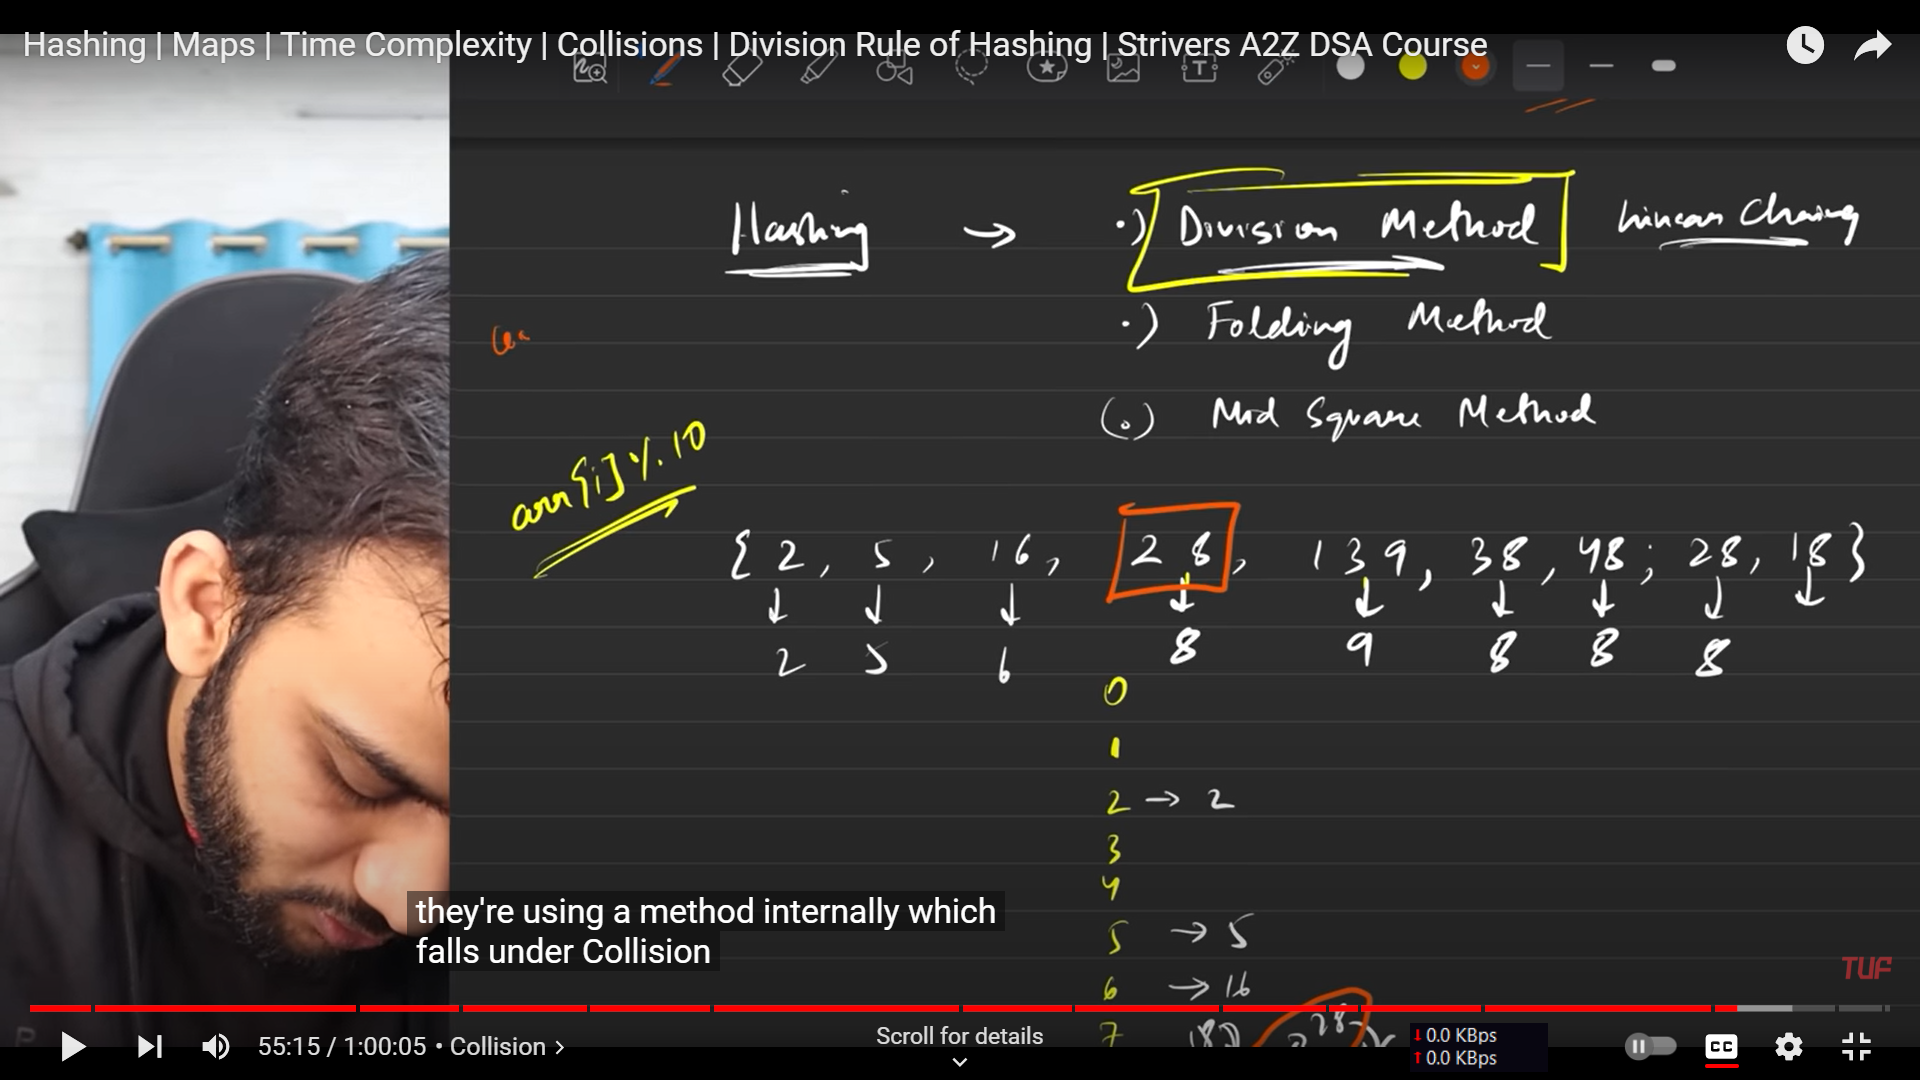 Hashing | Maps | Time Complexity | Collisions | Division Rule of Hashing | Strivers A2Z DSA Course
Hashing → •) Division Method Linear Chaining
•) Folding Method
(•) Mid Square Method
arr[i] % 10
{ 2, 5, 16, 28, 139, 38, 48, 28, 18 }
2 5 6 8 9 8 8 8
0
1
2 → 2
3
4
5 → 5
6 → 16
7
they're using a method internally which
falls under Collision
TUF
55:15 / 1:00:05 • Collision >
Scroll for details
0.0 KBps
0.0 KBps
CC